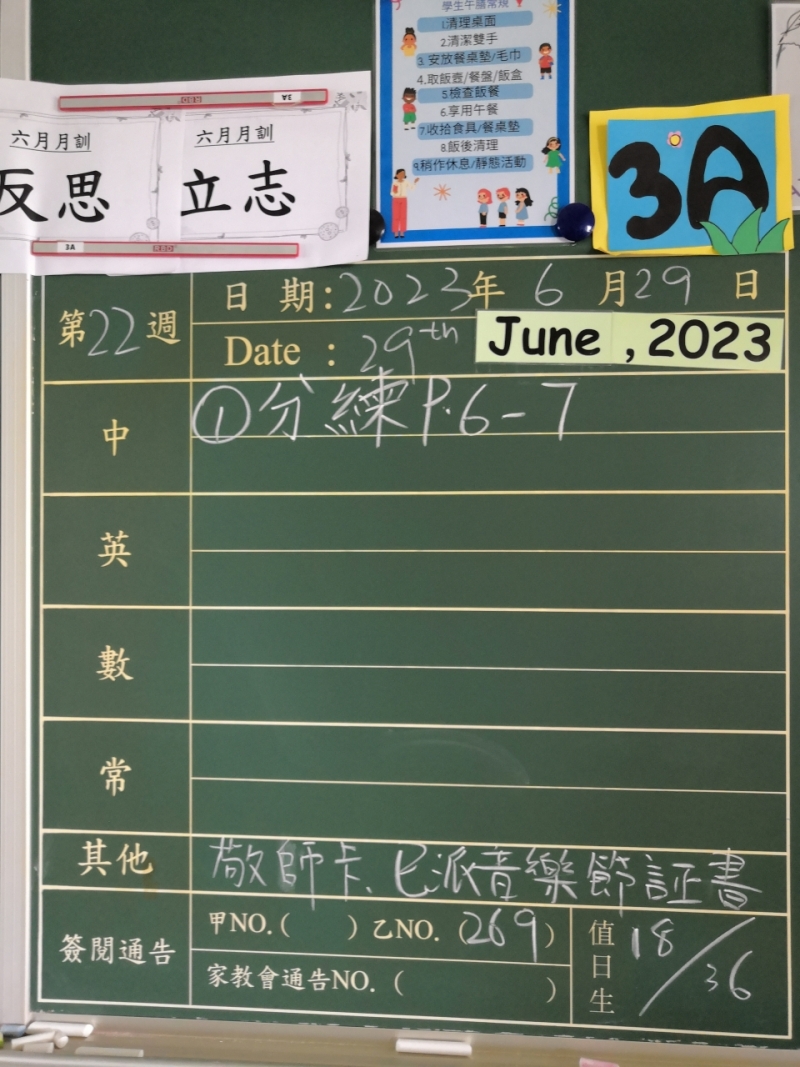 學生午膳常規
1.清理桌面
2.清潔雙手
3.安放餐桌墊/毛巾
4.取飯壺/餐盤/飯盒
5.檢查飯餐
6.享用午餐
7.收拾食具/餐桌墊
8.飯後清理
9.稍作休息/靜態活動
3A
RBD
六月月訓
反思
六月月訓
立志
3A
RBD
3A
第22週
日期:2023年6月29日
Date : 29th June ,2023
中
①分練P.6-7
英
數
常
其他
敬師卡、已派音樂節証書
簽閱通告
甲NO.( ) 乙NO.(269)
家教會通告NO.( )
值日生
18/36